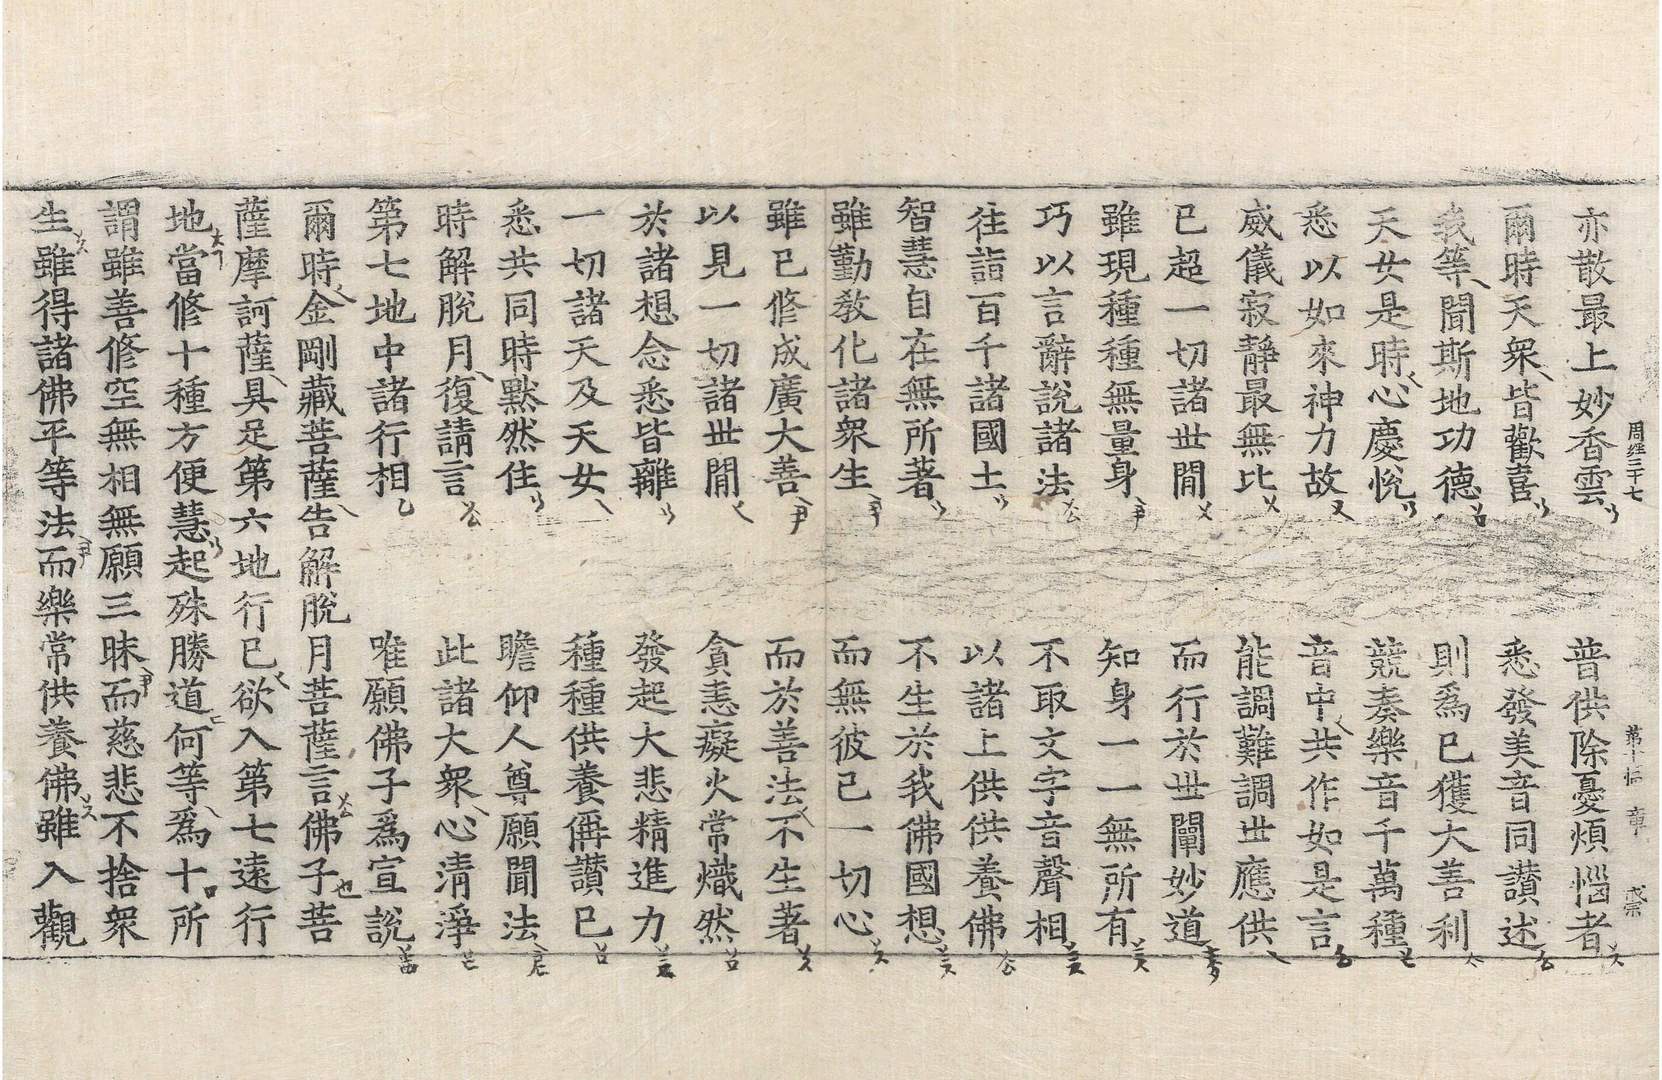 亦散最上妙香雲　普供除憂煩惱者
周經三十七　第十 章
爾時天衆皆歡喜　悉發美音同讚述
我等聞斯地功德　則爲已獲大善利
天女是時心慶悅　競奏樂音千萬種
悉以如來神力故　音中共作如是言
威儀寂靜最無比　能調難調世應供
已超一切諸世閒　而行於世闡妙道
雖現種種無量身　知身一一無所有
巧以言辭說諸法　不取文字音聲相
往詣百千諸國土　以諸上供供養佛
智慧自在無所著　不生於我佛國想
雖勤教化諸衆生　而無彼已一切心
雖已修成廣大善　而於善法不生著
以見一切諸世閒　貪恚癡火常熾然
於諸想念悉皆離　發起大悲精進力
一切諸天及天女　種種供養偁讚已
悉共同時默然住　瞻仰人尊願聞法
時解脫月復請言　此諸大衆心清淨
第七地中諸行相　唯願佛子爲宣說
爾時金剛藏菩薩告解脫月菩薩言佛子菩
薩摩訶薩具足第六地行已欲入第七遠行
地當修十種方便慧起殊勝道何等爲十所
謂雖善修空無相無願三昧而慈悲不捨衆
生雖得諸佛平等法而樂常供養佛雖入觀